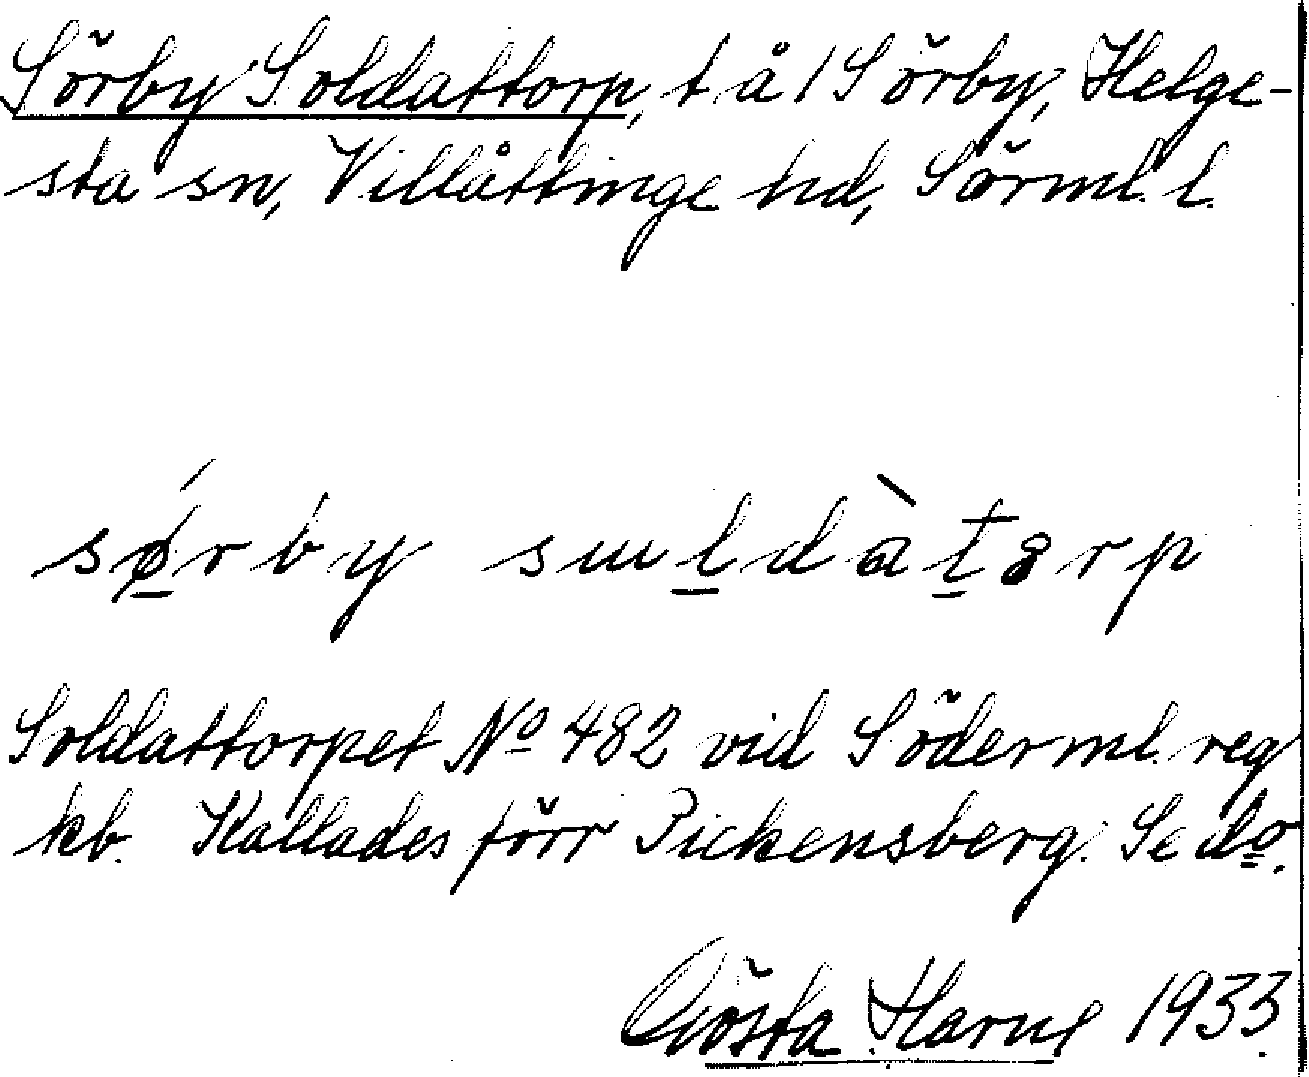 Sörby Soldattorp, t å 1 Sörby, Helge-
sta sn, Villåttinge hd, Sörml. l.
sørby suldàtorp
Soldattorpet No 482 vid Söderml. reg
kb. Kallades förr Pickensberg. Se do.
Gösta Harne 1933.